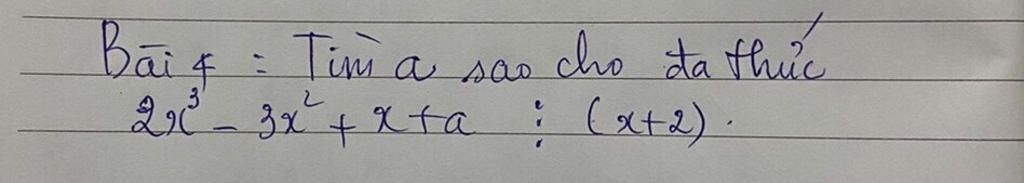 Bài 4 : Tìm a sao cho đa thức
2x³ - 3x² + x + a ⋮ (x+2).